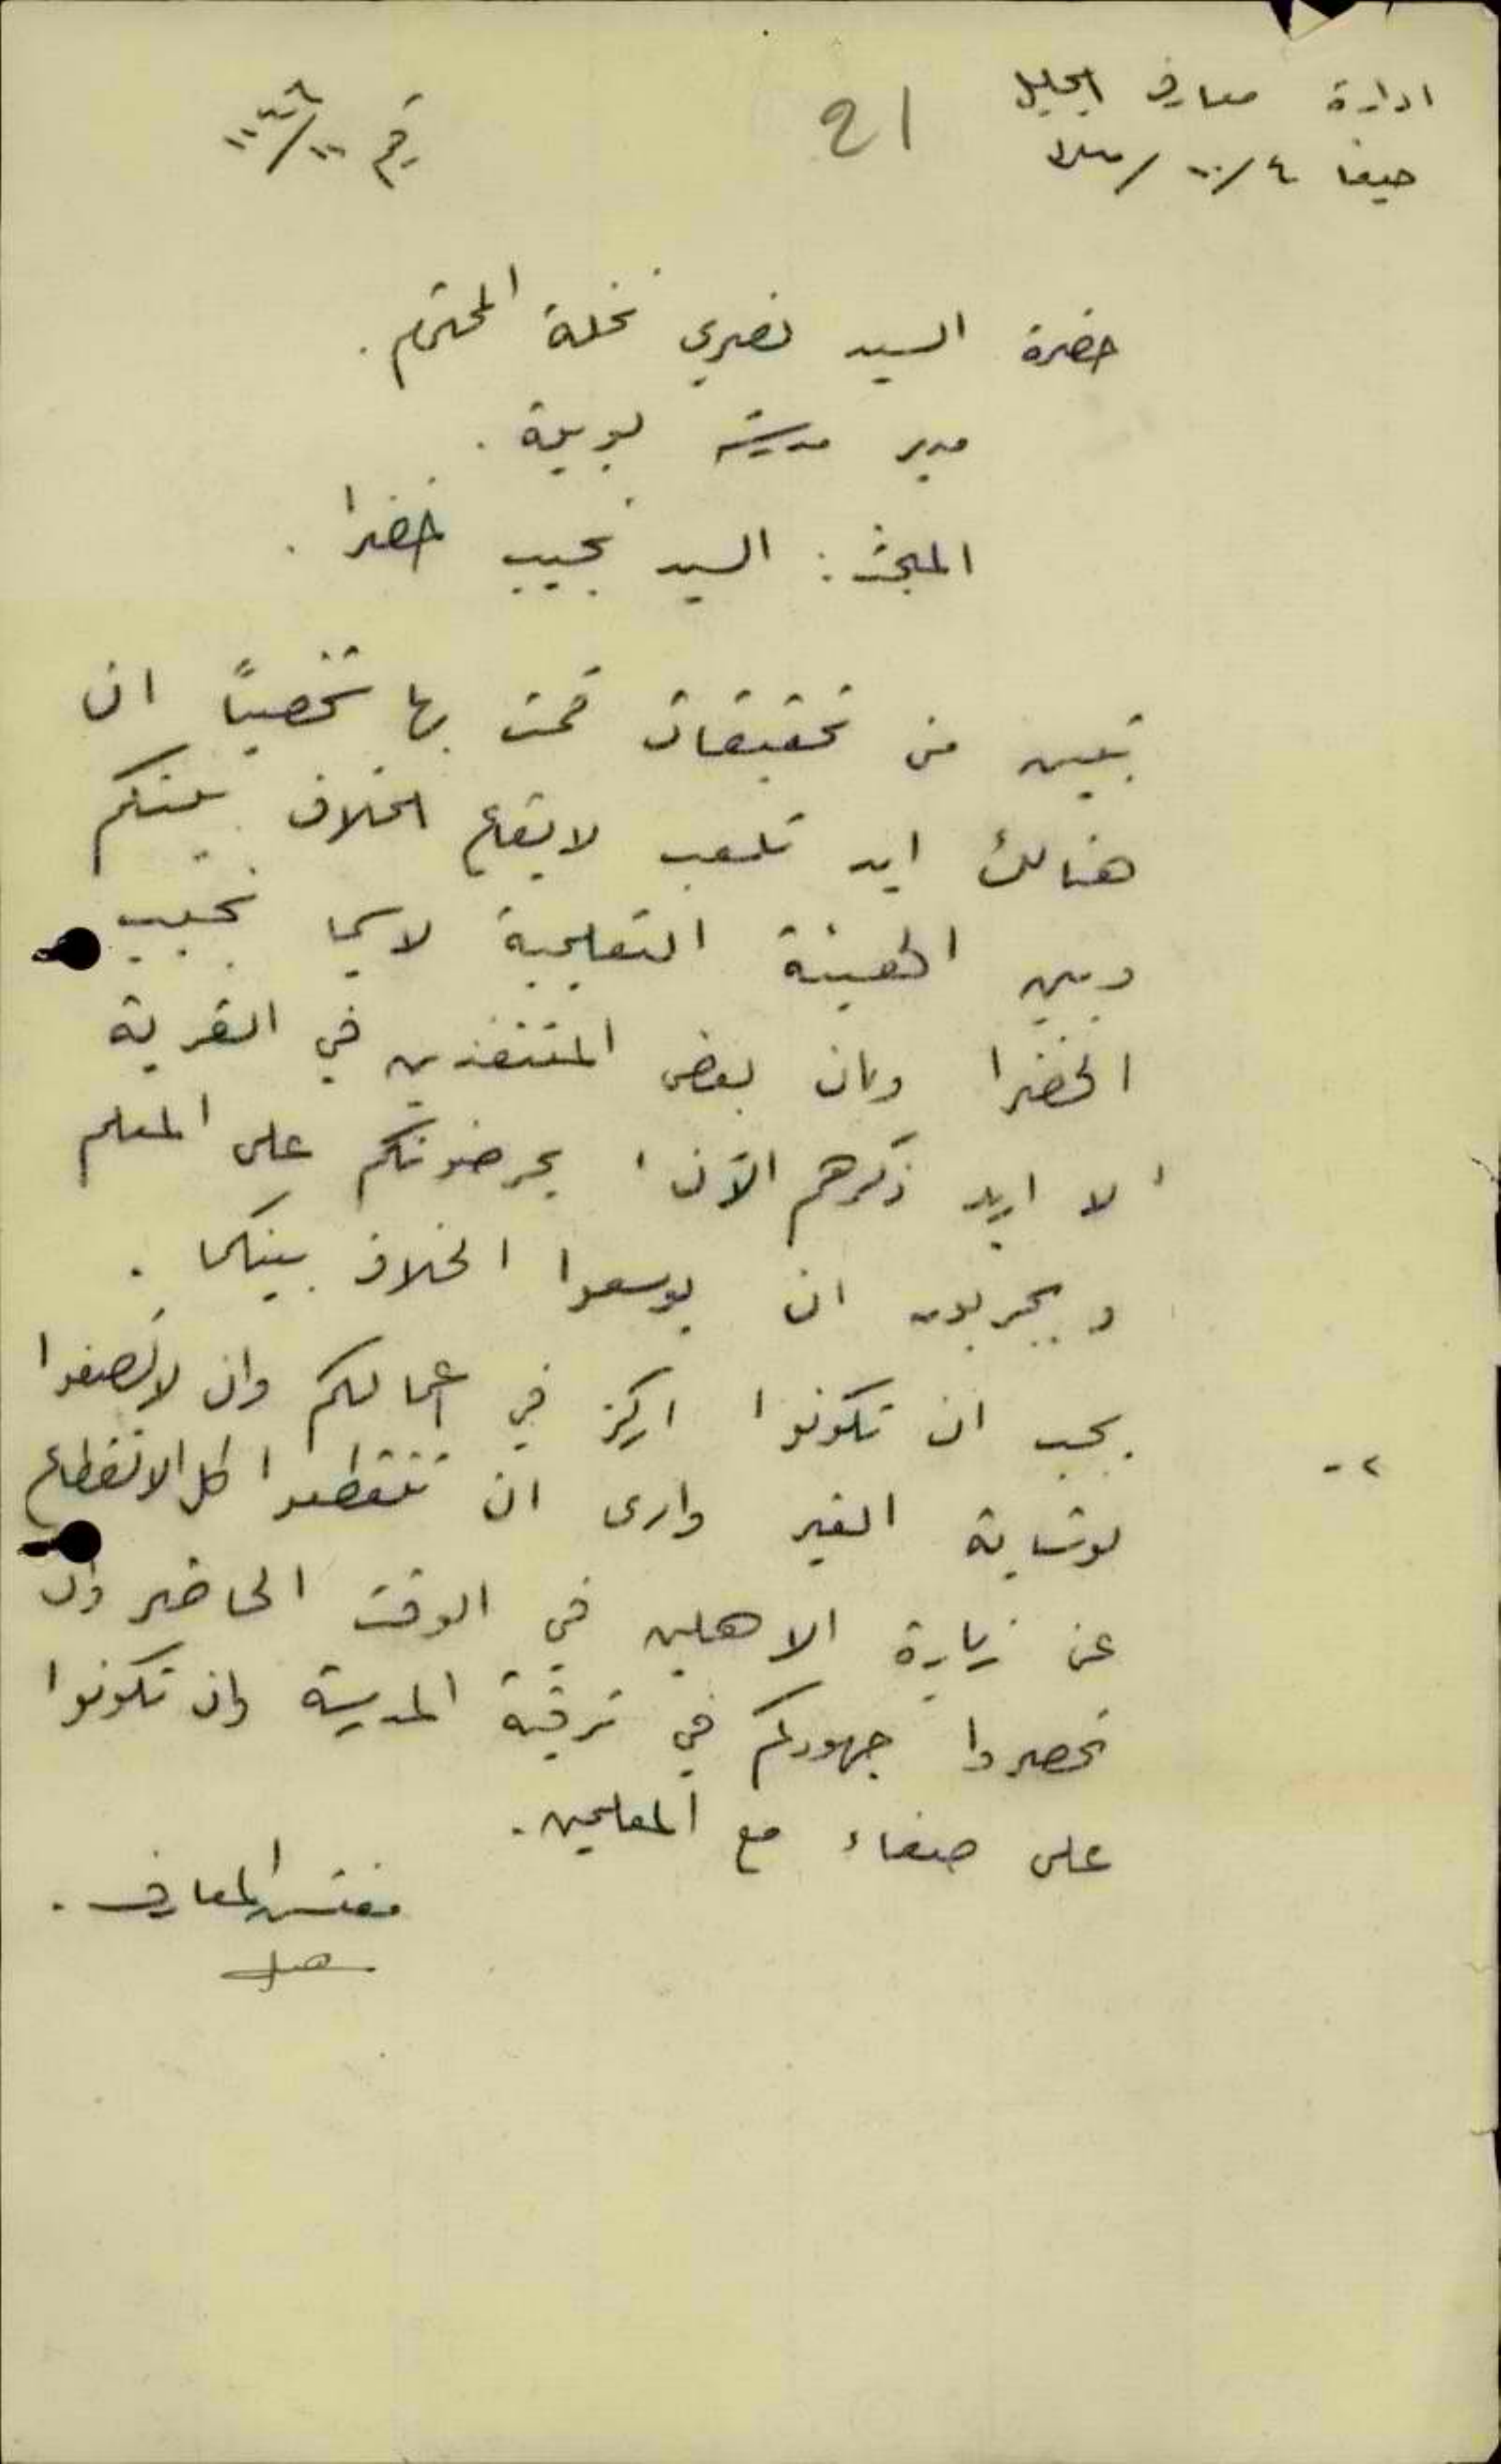 ادارة معارف الجليل
حيفا ٤/١٠/
21
رقم
حضرة السيد نصري نخلة المحترم .
مدير مدرسة .
المبحث : السيد نجيب خضرا .
تبين من تحقيقات قمت بها شخصياً ان
هنالك ايد تلعب لايقاع الخلاف بينكم
وبين الهيئة التعليمية لاسيما نجيب
الخضرا وبان بعض المتنفذين في القرية
لا اريد ذكرهم الآن يحرضونكم على المعلم
ويجربون ان يوسعوا الخلاف بينكما .
٢- يجب ان تكونوا اركز في اعمالكم وان لا تصغوا
لوشاية الغير وارى ان تنقطعوا كل الانقطاع
عن زيارة الاهلين في الوقت الحاضر وان
تحصروا جهودكم في ترقية المدرسة وان تكونوا
على صفاء مع المعلمين .
مفتش المعارف .